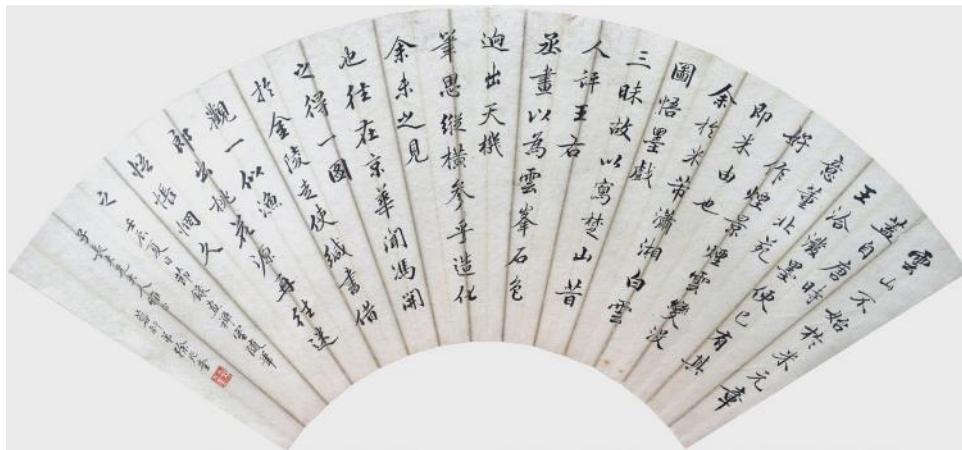 雲山不始於米元章
蓋自唐時
王洽潑墨便已有其
意董北苑
好作煙景煙雲變沒
即米由也
余於米芾瀟湘白雲
圖悟墨戲
三昧故以寫楚山昔
人評王右
丞畫以為雲峯石色
迥出天機
筆思縱橫參乎造化
余未之見
也往在京華聞馮開
之得一圖
於金陵走使緘書借
觀一似漁
郎出桃花源再往迷
悟惆久
之
夏日禪室隨筆
先生大人弟徐